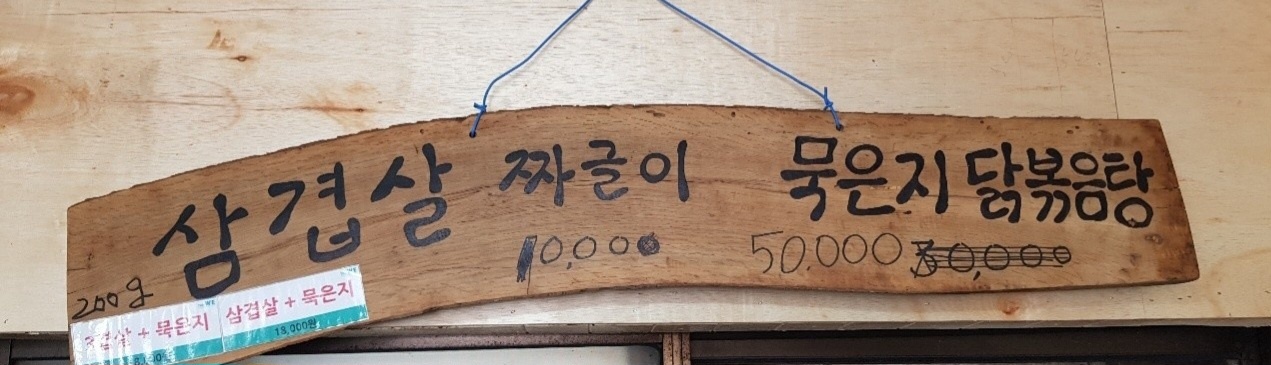 삼겹살 짜글이 묵은지 닭볶음탕
200g 10,000 50,000
삼겹살 + 묵은지 삼겹살 + 묵은지
13,000원